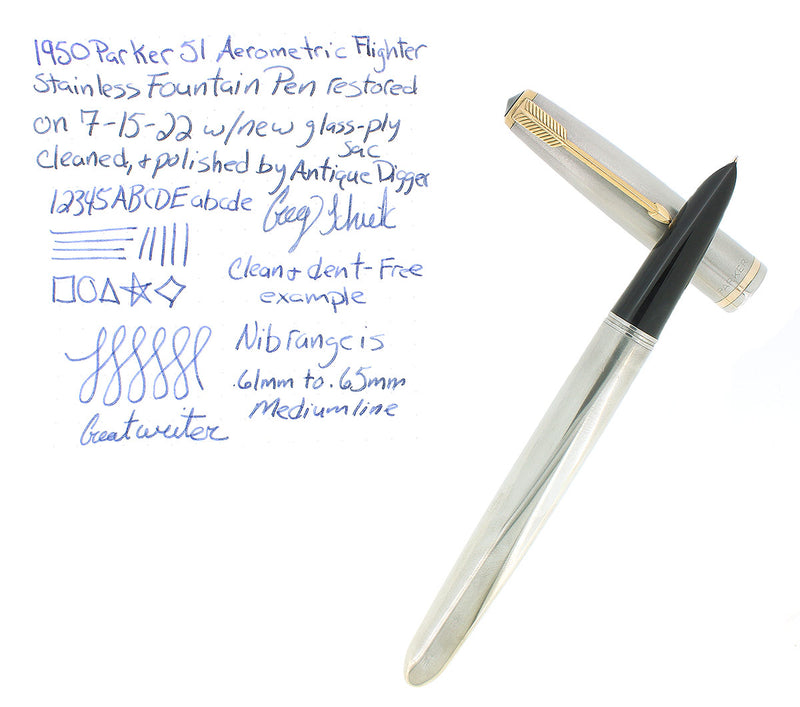 1950 Parker 51 Aerometric Flighter
Stainless Fountain Pen restored
on 7-15-22 w/new glass-ply
sac
cleaned, + polished by Antique Digger
12345 ABCDE abcde
Clean + dent-Free
example
Nib range is
.61mm to .65mm
Medium line
Great writer
PARKER